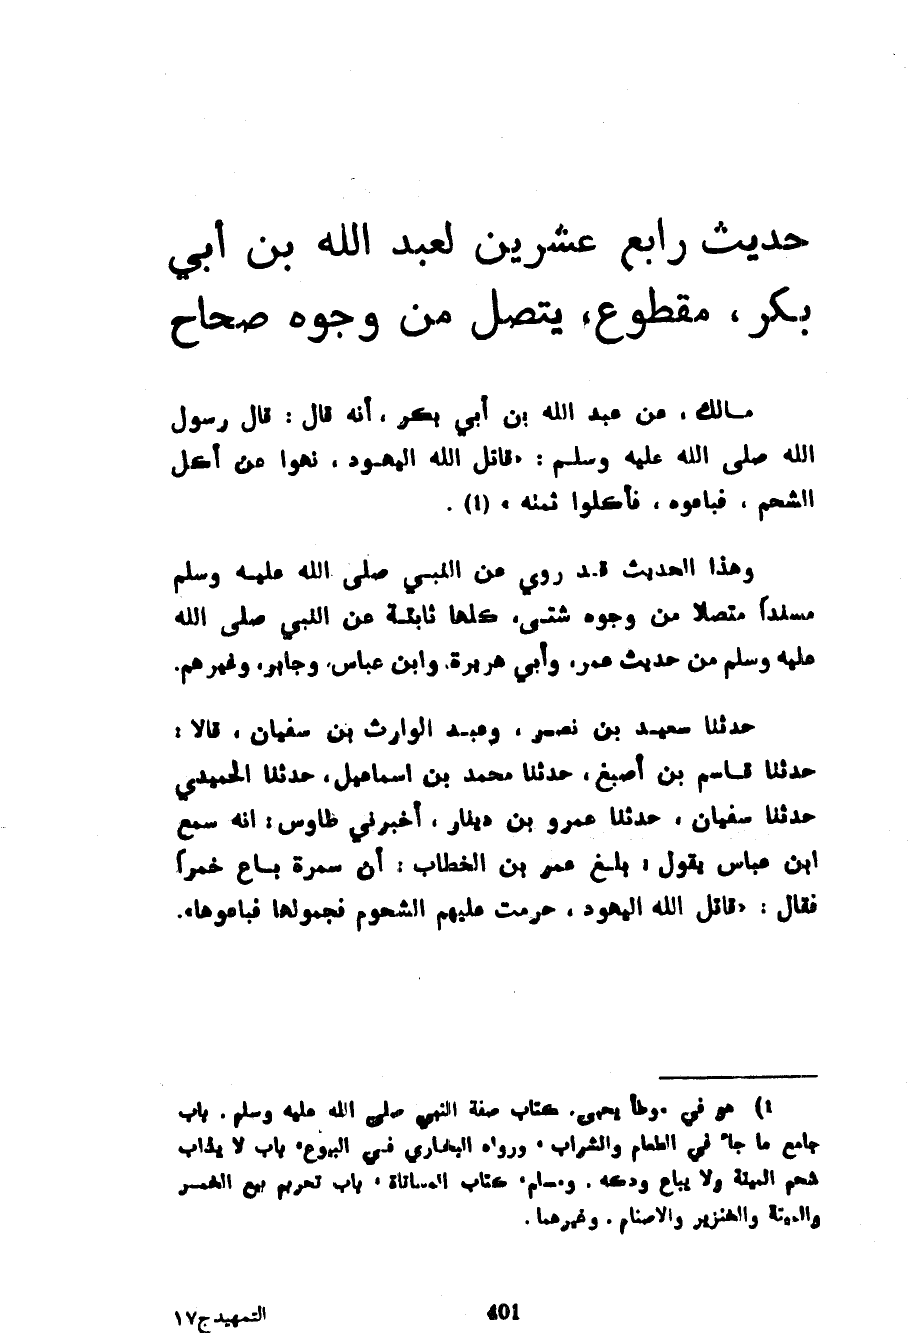 حديث رابع عشرين لعبد الله بن أبي
بكر ، مقطوع، يتصل من وجوه صحاح
مالك ، عن عبد الله بن أبي بكر ، أنه قال : قال رسول
الله صلى الله عليه وسلم : «قاتل الله اليهود ، نهوا عن أكل
الشحم ، فباعوه ، فأكلوا ثمنه » (1) .
وهذا الحديث قد روي عن النبي صلى الله عليه وسلم
مسندا متصلا من وجوه شتى، كلها ثابتة عن النبي صلى الله
عليه وسلم من حديث عمر، وأبي هريرة، وابن عباس، وجابر، وغيرهم.
حدثنا سعيد بن نصر ، وعبد الوارث بن سفيان ، قالا :
حدثنا قاسم بن أصبغ، حدثنا محمد بن اسماعيل، حدثنا الحميدي
حدثنا سفيان ، حدثنا عمرو بن دينار ، أخبرني طاوس: انه سمع
ابن عباس يقول : بلغ عمر بن الخطاب : أن سمرة باع خمرا
فقال : «قاتل الله اليهود ، حرمت عليهم الشحوم فجمولها فباعوها».
1) هو في موطأ يحيى، كتاب صفة النبي صلى الله عليه وسلم . باب
جامع ما جاء في الطعام والشراب ، ورواه البخاري في البيوع، باب لا يذاب
شحم الميتة ولا يباع ودكه . ومسلم، كتاب المساقاة ، باب تحريم بيع الخمر
والميتة والخنزير والاصنام . وغيرهما .
401
التمهيد ج١٧